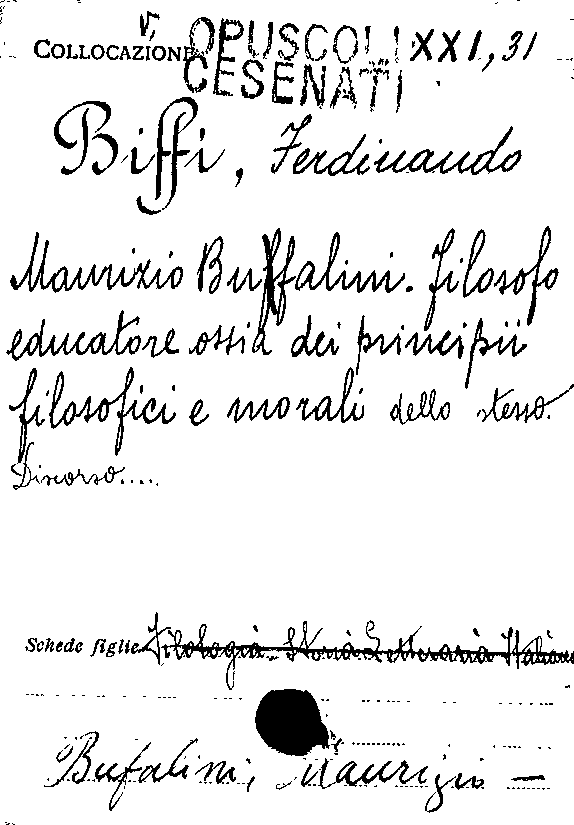 V,
COLLOCAZIONE OPUSCOLI XXI, 31
CESENATI
Biffi, Ferdinando
Maurizio Buffalini. Filosofo
educatore ossia dei principii
filosofici e morali dello stesso.
Discorso....
Schede figlie Filologia. Storia Letteraria Italiana
Bufalini, Maurizio —